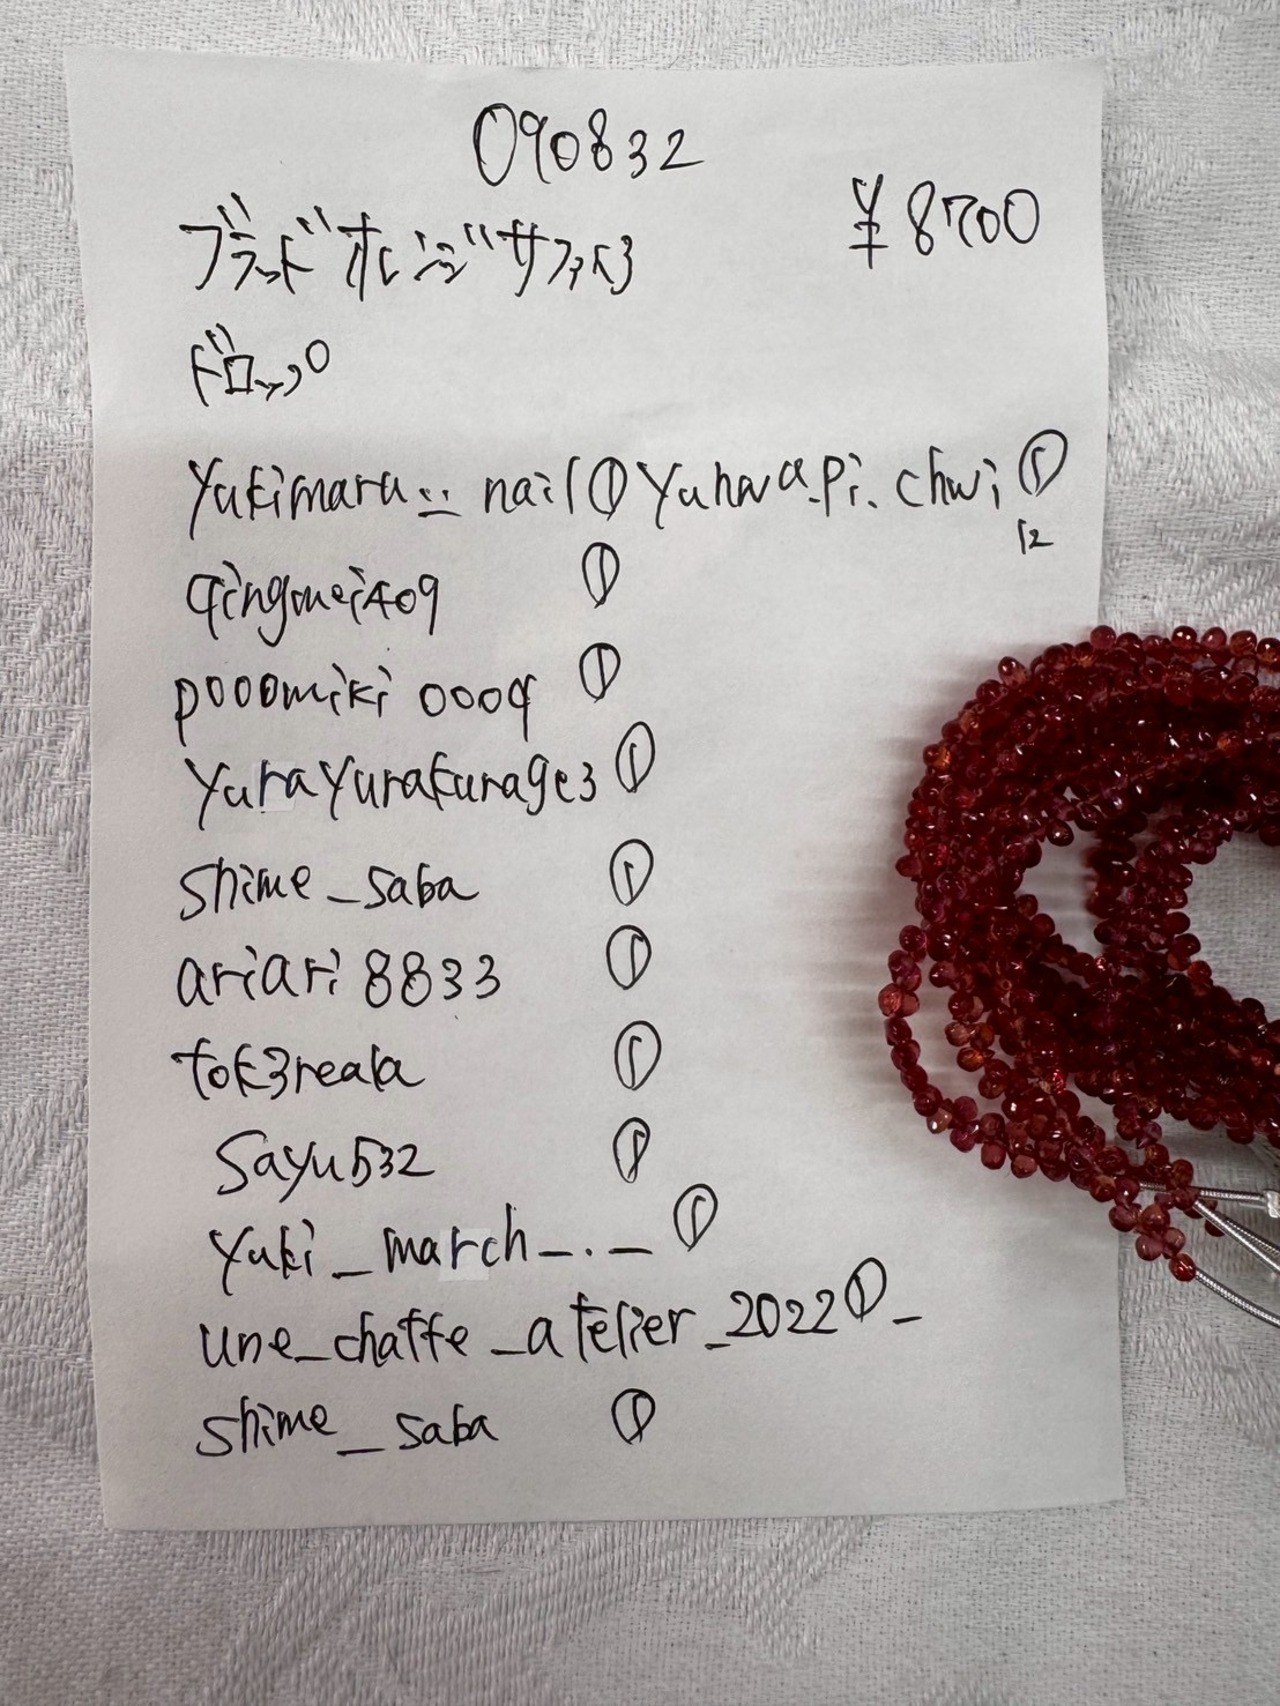 090832
¥8700
ブラッドオレンジサファイヤ
ドロップ
yukimaru_._nail① yuhwa.pi.chwi①
12
qingmei409 ①
pooomiki0009 ①
yurayurakurage3 ①
shime_saba ①
ariari8833 ①
tok3reala ①
sayu532 ①
yuki_march_._ ①
une_chatte_atelier_2022①_
shime_saba ①